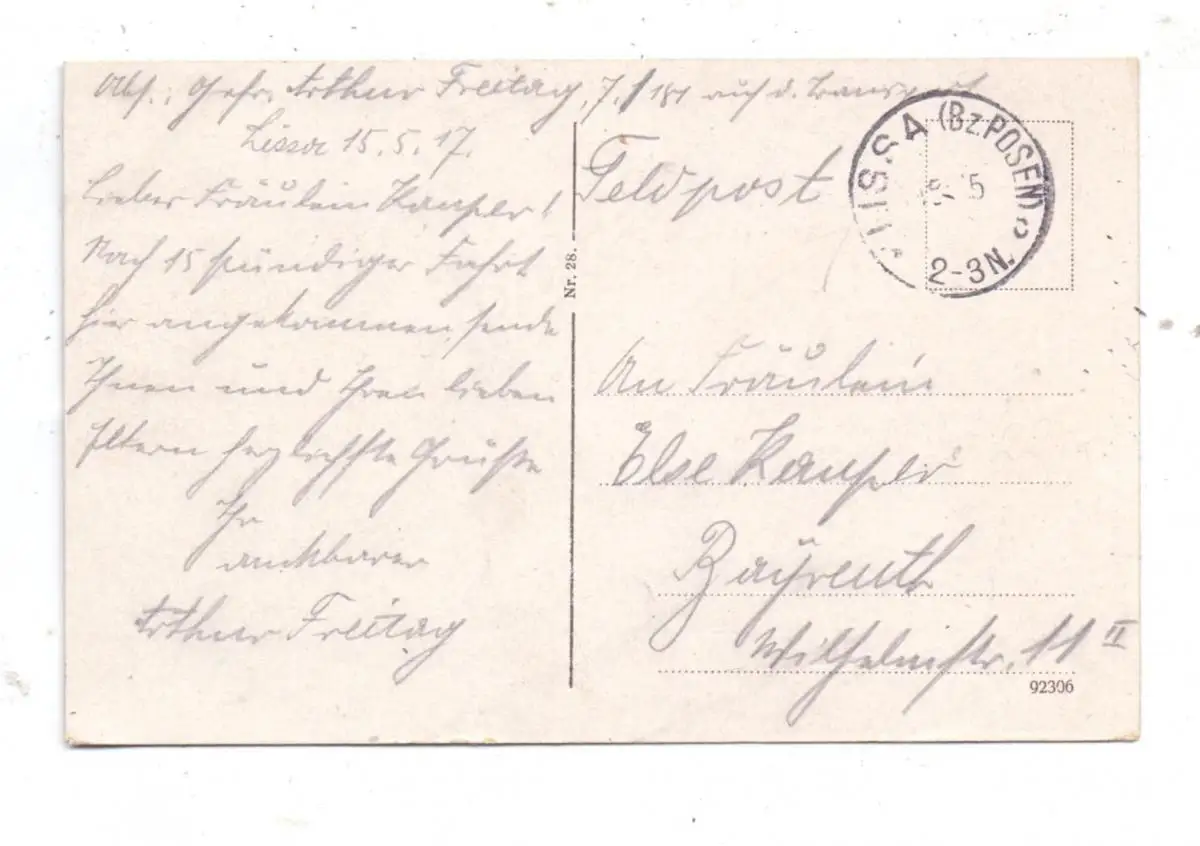 Abs.: Gefr. Arthur Freitag, 7./181 auf d. Transport
Lissa 15.5.17.
Liebes Fräulein
Nach 15 stündiger Fahrt
hier angekommen, sende
Ihnen und Ihren lieben
Eltern herzlichste Grüße
Ihr
dankbarer
Arthur Freitag
Nr. 28.
Feldpost
LISSA (Bz. POSEN)
2-3N.
An Fräulein
Else
Bayreuth
Wilhelmstr. 11 II
92306